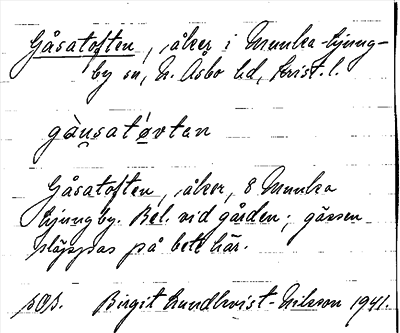 Gåsatoften, åker i Munka-Ljung-
by sn, N. Åsbo hd, Krist. l.
gàu̯sat'øvtan
Gåsatoften, åker, 8 Munka
Ljungby. Bel. vid gården; gässen
släppas på bete här.
Birgit Lundkvist-Nilsson 1941.